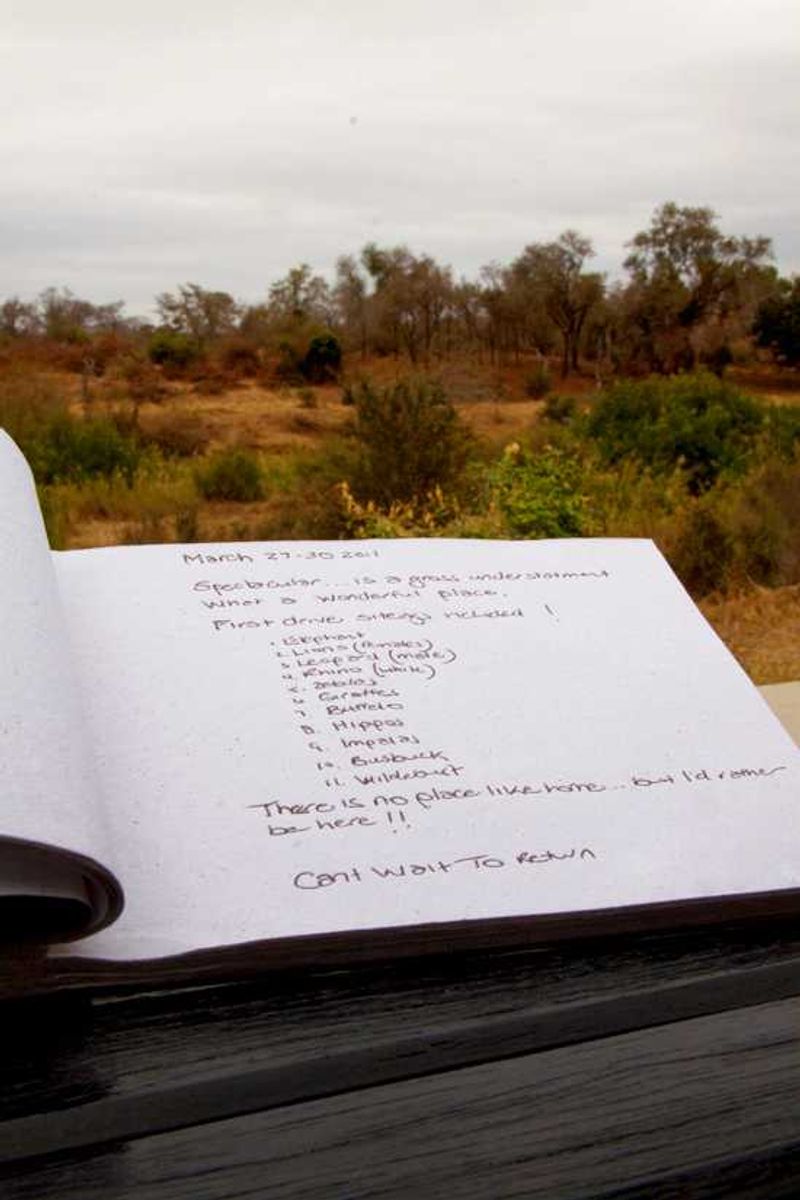 March 27-30 2011
Spectacular... is a gross understatment
What a wonderful place.
First drive sitings included !
1. Elephant
2. Lions (females)
3. Leopard (male)
4. Rhino (white)
5. Zebras
6. Giraffes
7. Buffelo
8. Hippos
9. Impalas
10. Busbuck
11. Wildebeast
There is no place like home... but I'd rather
be here !!
Cant Wait To Return